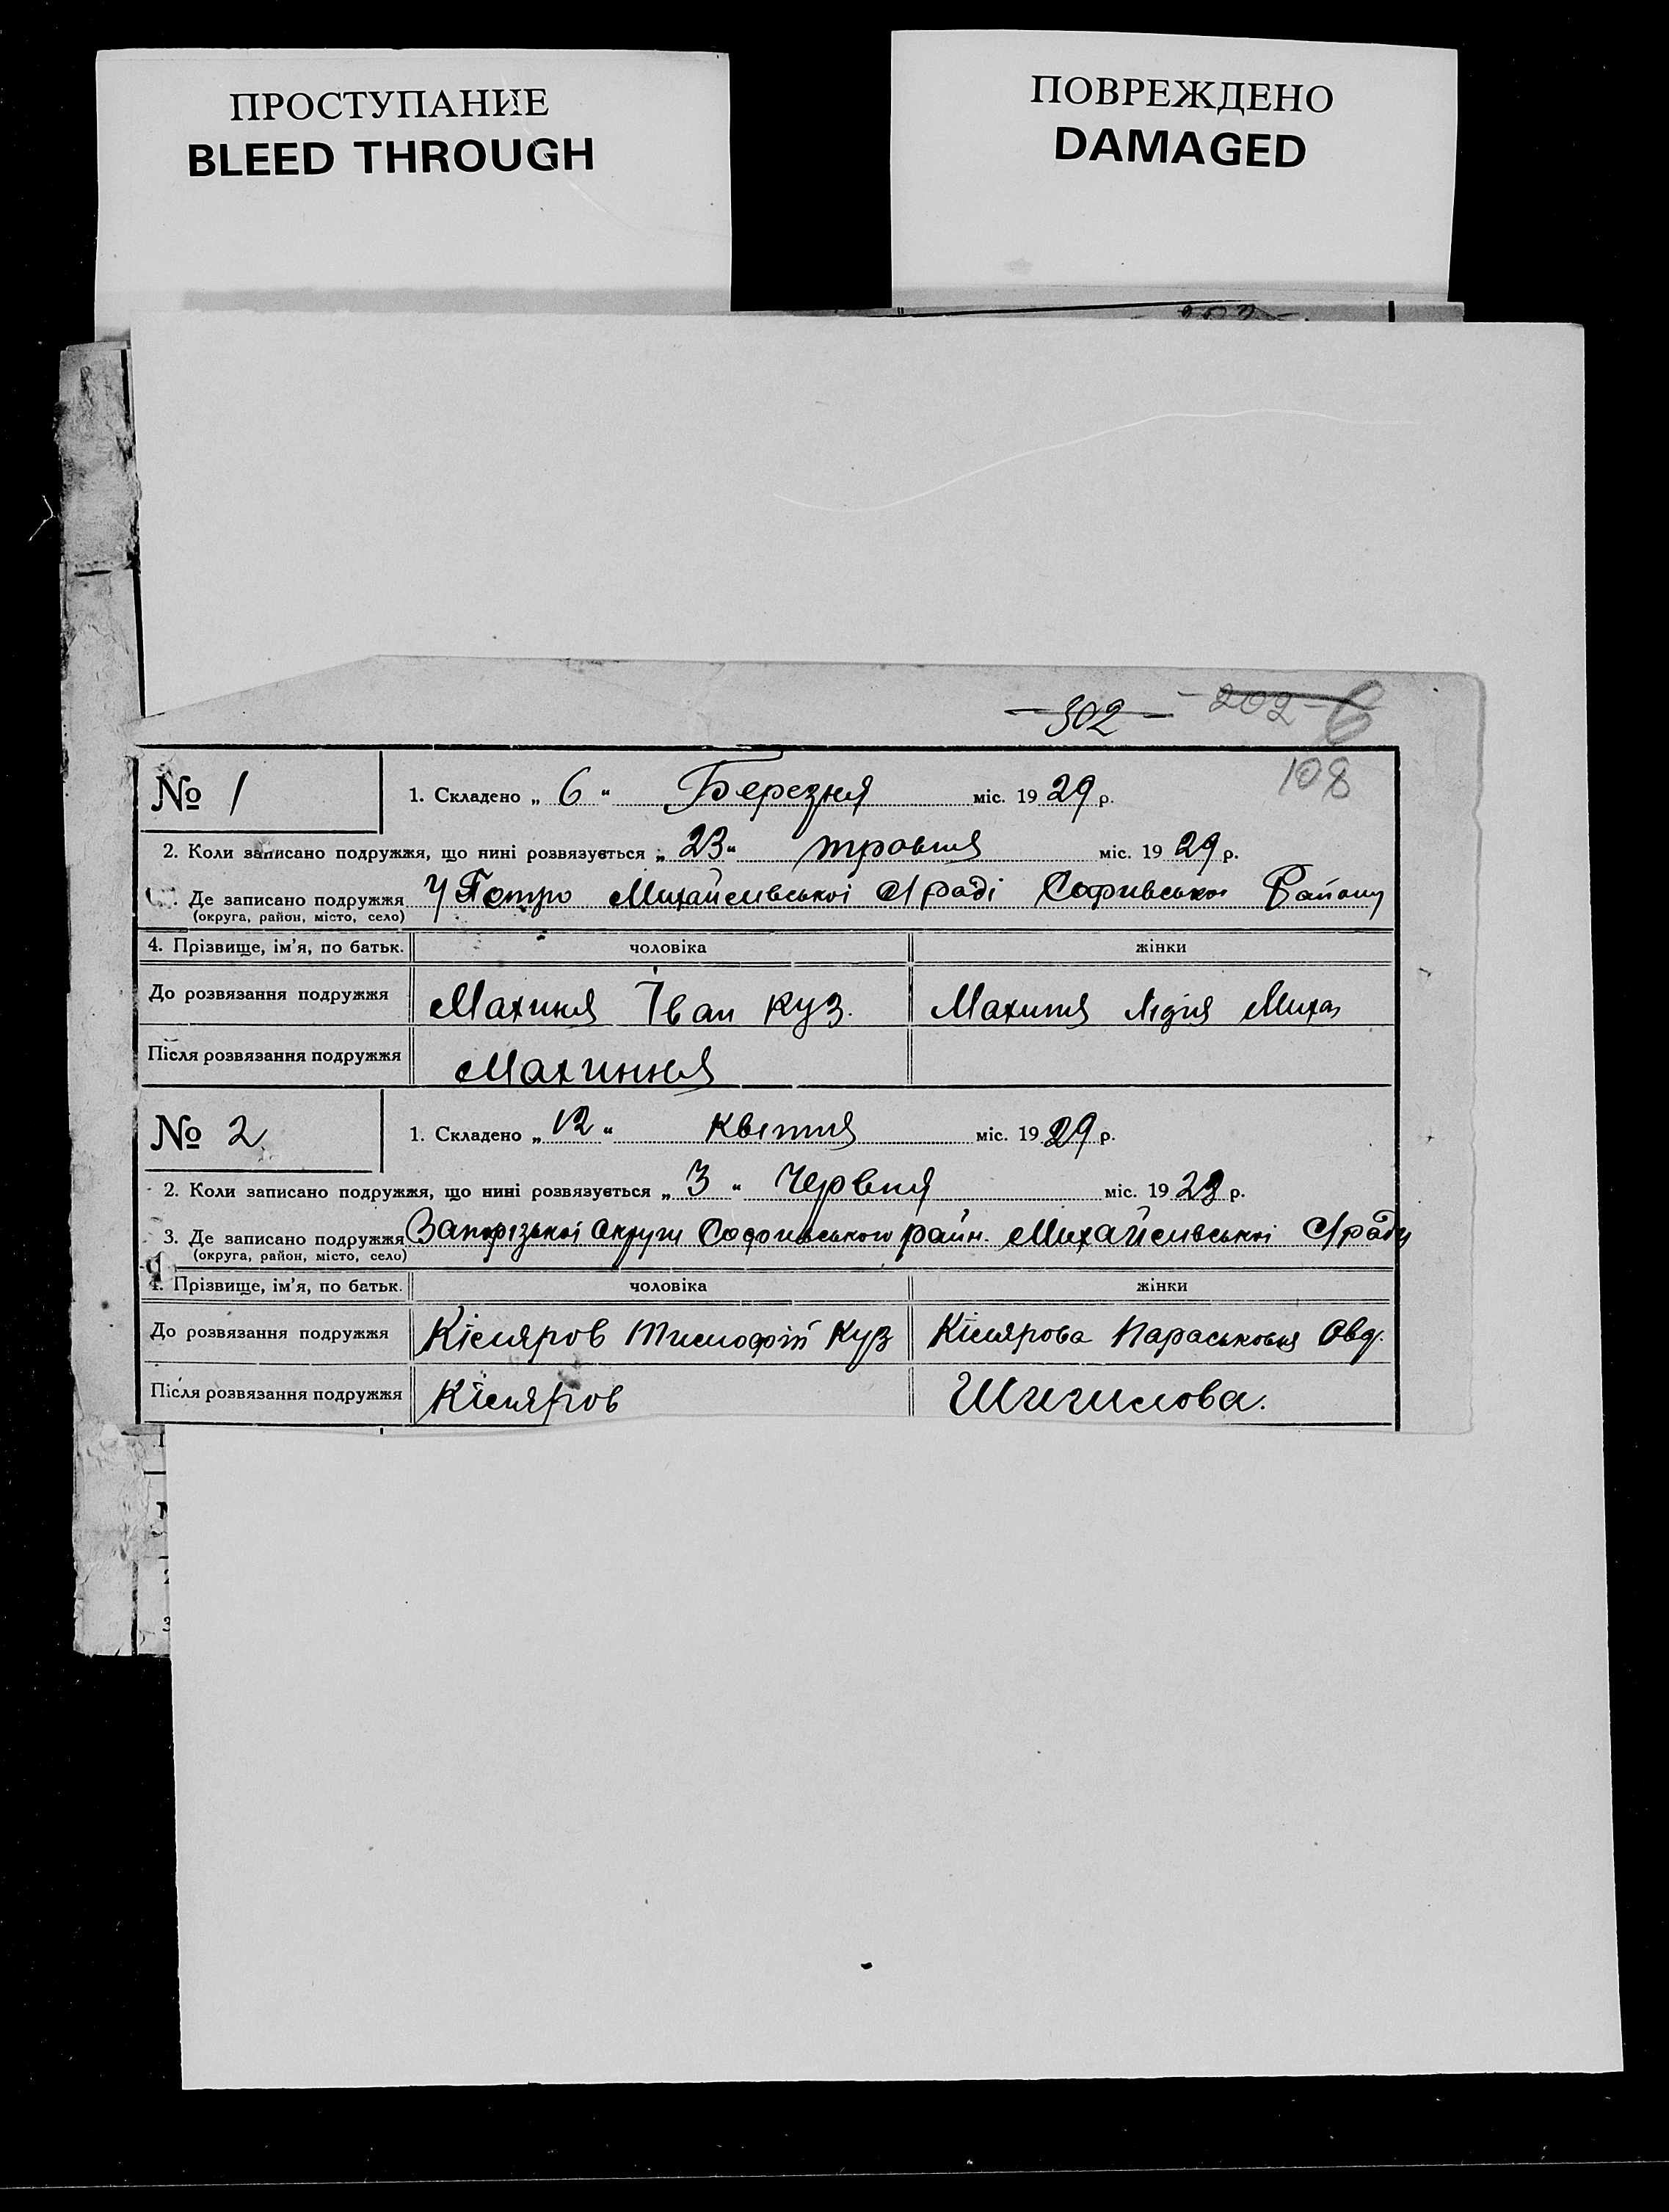 ПРОСТУПАНИЕ
BLEED THROUGH
ПОВРЕЖДЕНО
DAMAGED
302 - 202 - 6
108
№ 1 1. Складено „ 6 “ Березня міс. 19 29 р.
2. Коли записано подружжя, що нині розвязується „ 23 “ травня міс. 19 29 р.
Де записано подружжя У Михайливськоі С/раді Софивськоі Району
(округа, район, місто, село)
4. Прізвище, ім'я, по батьк. чоловіка жінки
До розвязання подружжя Махиня Іван Куз. Махиня Лідія Миха
Після розвязання подружжя Махиння
№ 2 1. Складено „ 12 “ Квітня міс. 19 29 р.
2. Коли записано подружжя, що нині розвязується „ 3 “ Червня міс. 19 28 р.
3. Де записано подружжя Запорізькоі Округи Софиивського район. Михайливськоі С/ради
(округа, район, місто, село)
4. Прізвище, ім'я, по батьк. чоловіка жінки
До розвязання подружжя Кісляров Тимофій Куз Кіслярова Параськовья Овд.
Після розвязання подружжя Кісляров Шигилова.